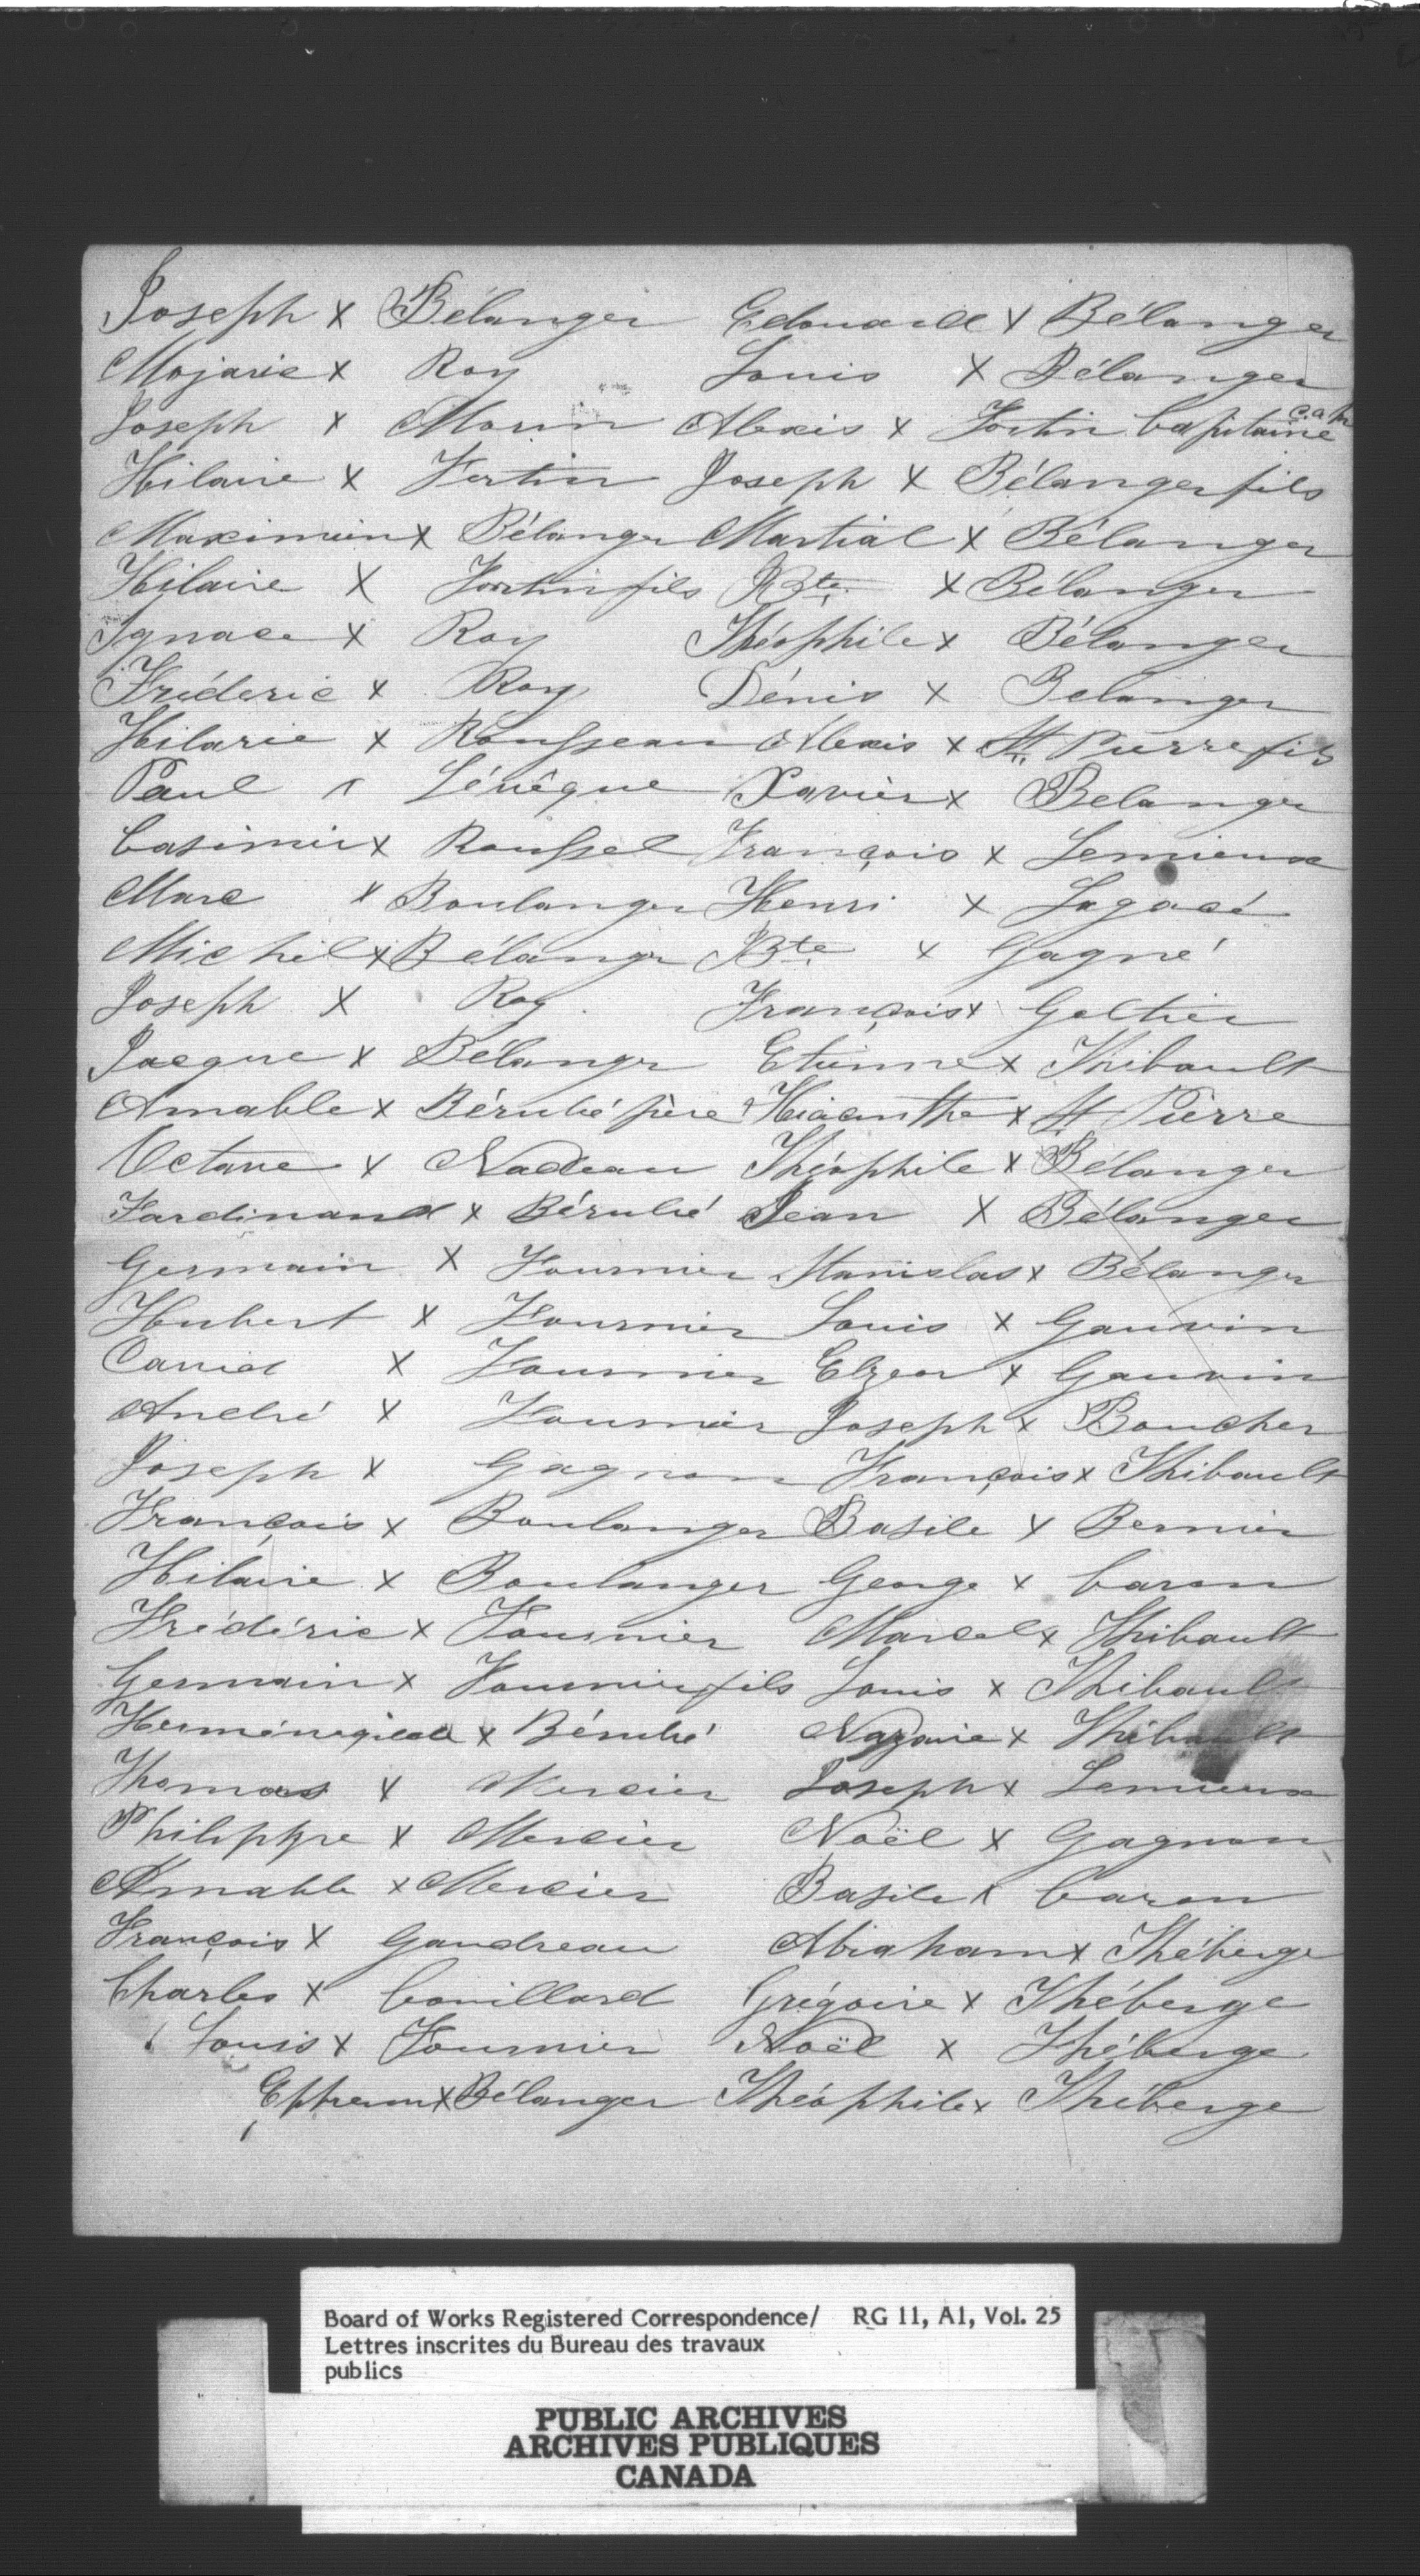 Joseph x Bélanger Edouard x Bélanger
Mojarie x Roy Louis x Bélanger
Joseph x Morin Alexis x Fortin Capitaine
Hilaire x Fortin Joseph x Bélanger fils
Maximin x Bélanger Martial x Bélanger
Hilaire x Fortin fils Bte x Bélanger
Ignace x Roy Théophile x Bélanger
Fréderic x Roy Dénis x Belanger
Hilarie x Rousseau Alexis x St Pierre fils
Paul x Lévêque Xavier x Belanger
Casimir x Roussel François x Lemieux
Marc x Boulanger Henri x Lagacé
Michel x Bélanger Bte x Gagné
Joseph x Roy François x Galtier
Jacque x Bélanger Etienne x Thibault
Amable x Bérubé père Hiacinthe x St Pierre
Octave x Nadeau Théophile x Bélanger
Fardinand x Bérubé Jean x Bélanger
Germain x Fournier Stanislas x Bélanger
Hubert x Fournier Louis x Gauvin
x Fournier Elzear x Gauvin
André x Fournier Joseph x Boucher
Joseph x Gagnon François x Thibault
François x Boulanger Basile x Bernier
Hilaire x Boulanger George x Caron
Frédéric x Fournier Marcel x Thibault
Germain x Fournier fils Louis x Thibault
Herménegilde x Bérubé Nazaire x Thibault
Thomas x Mercier Joseph x Lemieux
Philippe x Mercier Noël x Gagnon
Amable x Mercier Basile x Caron
François x Gaudreau Abraham x Théberge
Charles x Couillard Grégoire x Théberge
Louis x Fournier Noël x Théberge
Ephrem x Bélanger Théophile x Théberge
Board of Works Registered Correspondence/ RG 11, A1, Vol. 25
Lettres inscrites du Bureau des travaux
publics
PUBLIC ARCHIVES
ARCHIVES PUBLIQUES
CANADA